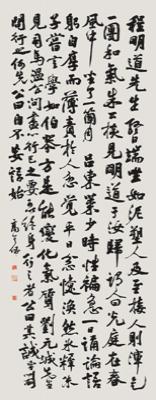 程明道先生終日端坐如泥塑人及至接人則渾是
一團和氣朱公掞見明道于汝歸曰光庭在春
風中坐了一個月呂東萊少時性褊急一日誦
躬自厚而薄責于人忽覺平日忿懥渙然冰釋朱
子嘗言學如伯恭方是能變化氣質劉元城先生
見司馬溫公問盡心行己之要可終身行之者公曰其誠乎問
行之何先公曰自不妄語始 高二适